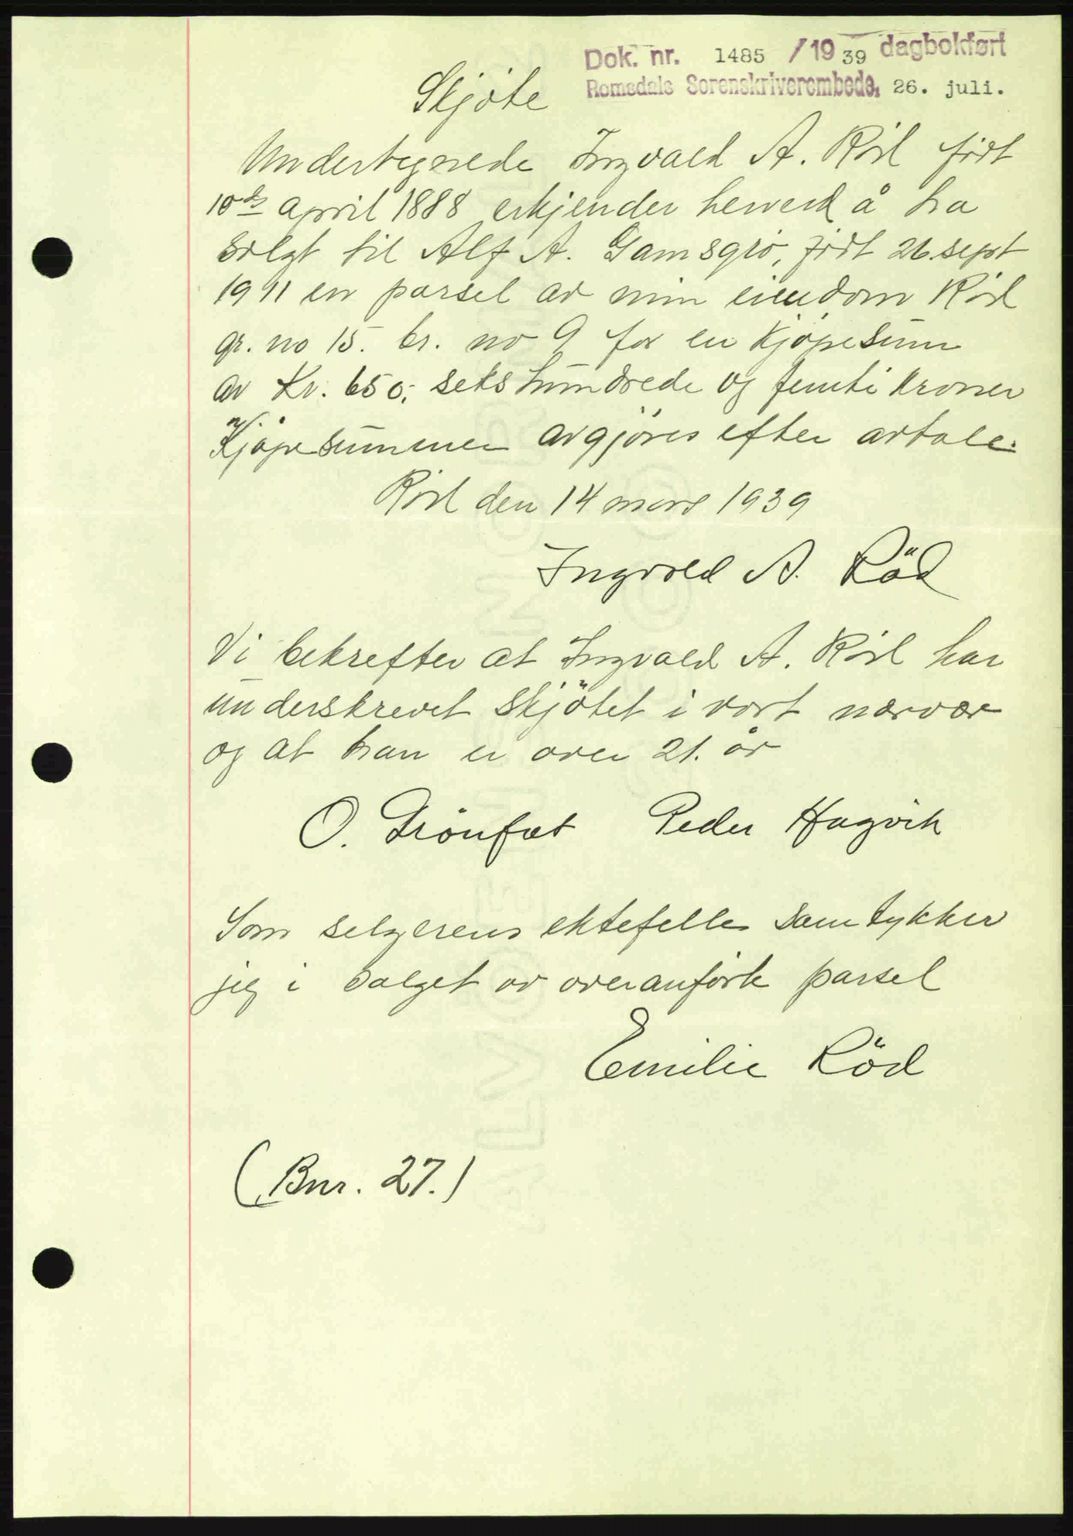 Dok. nr. 1485 /19 39 dagbokført
Romsdals Sorenskriverembede, 26. juli.
Skjöte
Undertegnede Ingvald A. Röd födt
10de april 1888 erkjender herved å ha
solgt til Alf A. födt 26. sept
1911 en parsel av min eiendom Röd
gr. no 15. br. no 9 for en kjöpesum
av Kr. 650,- sekshundrede og femti kroner
Kjöpesummen avgjöres efter avtale.
Röd den 14 mars 1939
Ingvald A. Röd
Vi bekrefter at Ingvald A. Röd har
underskrevet skjötet i vort nærvær
og at han er over 21. år
O. Grönfæt Peder Hagvik
Som selgerens ektefelle samtykker
jeg i salget av overanförte parsel
Emilie Röd
(Bnr. 27.)